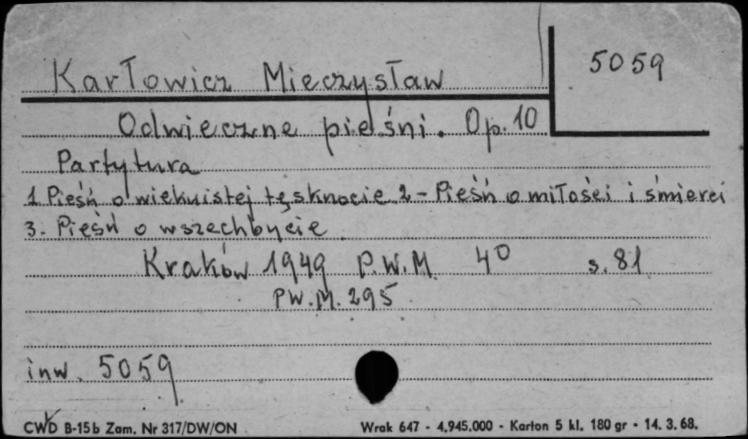 5059
Karłowicz Mieczysław
Odwieczne pieśni. Op. 10
Partytura
1 Pieśń o wiekuistej tęsknocie 2 - Pieśń o miłości i śmierci
3. Pieśń o wszechbycie
Kraków 1949 P.W.M. 4° s. 81
PW.M. 295
inw. 5059
CWD B-15b Zam. Nr 317/DW/ON Wrak 647 - 4.945.000 - Karton 5 kl. 180 gr - 14. 3. 68.